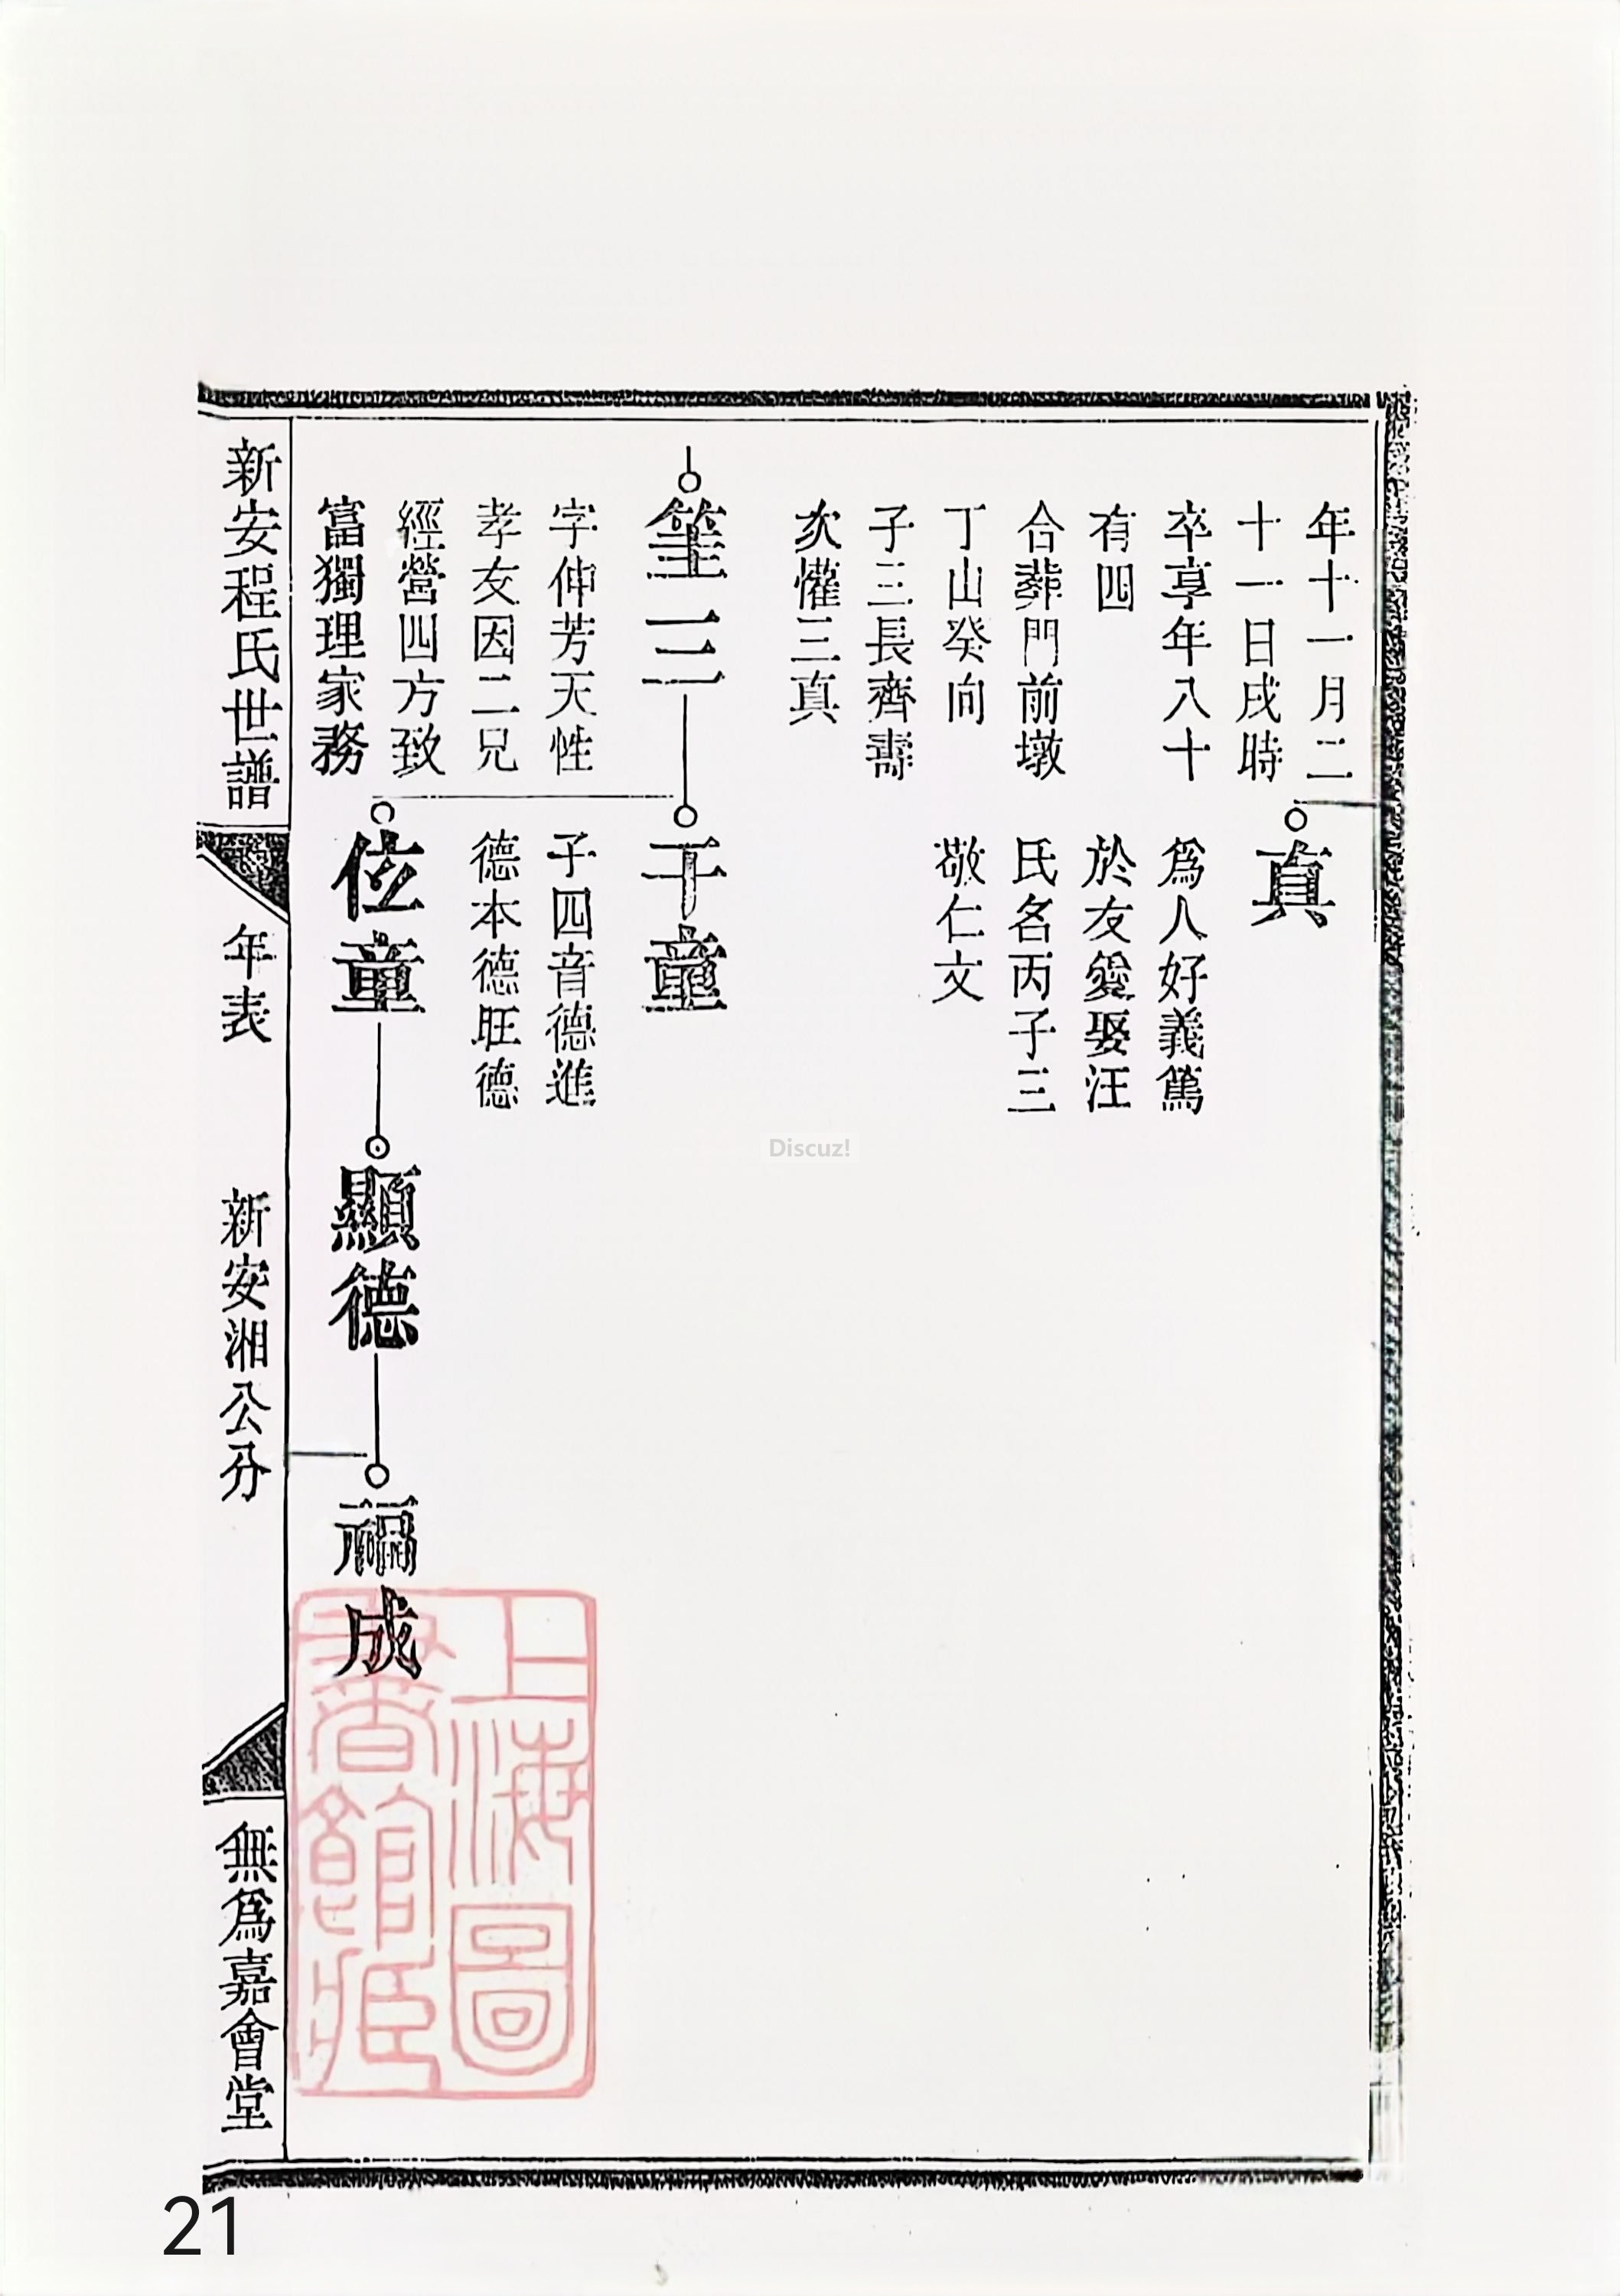 年十一月二
十一日戌時
卒享年八十
有四
合葬門前墩
丁山癸向
子三長齊壽
次懽三真
真
為人好義篤
於友愛娶汪
氏名丙子三
敬仁文
三
字伸芳天性
孝友因二兄
經營四方致
富獨理家務
干童
子四音德進
德本德旺德
位童
顯德
福成
新安程氏世譜
年表
新安湘公分
無為嘉會堂
上海圖
書館藏
Discuz!
21